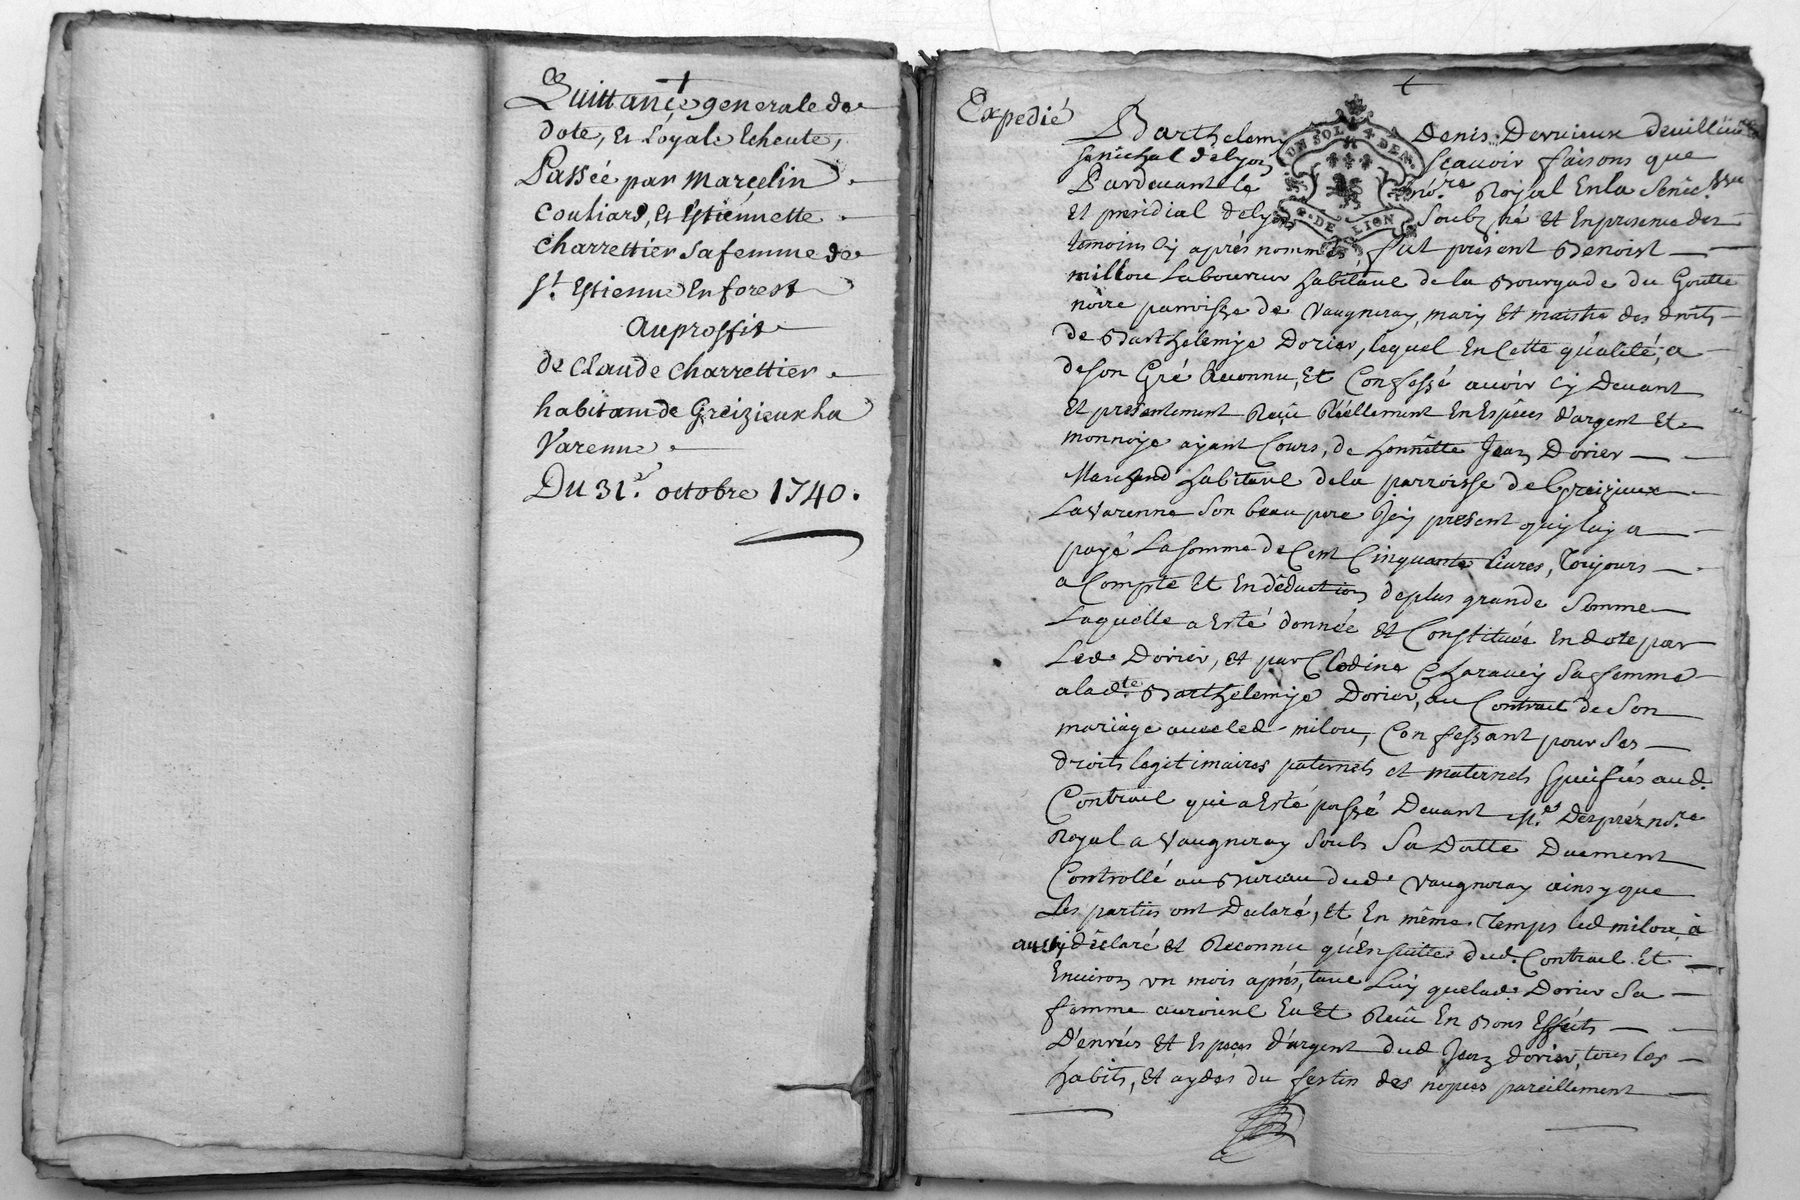 Quittance generale de
dote, et Loyale Echeute,
Passée par Marcelin
Couliard, et Estiennette
Charrettier sa femme de
St. Estienne En forest
Au proffit
de Claude Charrettier
habitant de Greizieux La
Varenne
Du 31e. octobre 1740.
Expedié
Barthelemy Denis Dervieux de Villieu
Senechal de Lyon Scavoir faisons que
Pardevant le nore Royal En la Senec.ssée
Et presidial de Lyon Soubzné Et En presence des
temoins Cy après nommés, fut présent Benoist
millou Laboureur habitant de la Bourgade du Goutte
noire parroisse de Vaugneray, mary Et maistre des droits
de Barthelemye Dorier, lequel En Cette qualité, a
de son Gré Reconnu, Et Confessé avoir Cy Devant
Et presentement Reçu Réellement En Espèces d'argent Et
monnoye ayant Cours, de honnette Jean Dorier
Marchand habitant de la parroisse de Greizieux
La Varenne Son beau pere Icy present quy luy a
payé La somme de Cent Cinquante livres, Toujours
a Compte Et En déduction de plus grande Somme
Laquelle a Esté donnée Et Constituée En dote par
Led. Dorier, et par Clodine Charavey Sa femme
a lad.te Barthelemye Dorier, au Contract de Son
mariage avec led. milou, Confessant pour Ses
droits legitimaires paternels et maternels Specifiés aud.
Contract qui a Esté passé Devant Me. Desprez no.re
Royal a Vaugneray Soubs Sa Datte Duement
Controllé au Bureau dud. Vaugneray ainsy que
Les parties ont Declaré, et En même Temps led milou, à
aussy déclaré et Reconnu qu'En suitte dud. Contract Et
Environ un mois après, tant Luy que lad. Dorier Sa
femme auroient Eu Et Reçu En Bons Efféts
D'enrées Et Espèces d'argent dud Jean dorier, tous les
habits, Et aydes du festin des nopces pareillement
UN SOL 4 DEN.
G. DE LION